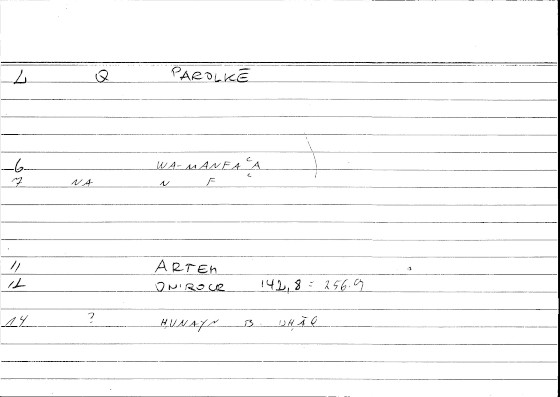 L Q PAROLKĒ
6 WA-MANFAʿA
7 NA N F ʿ
11 ARTEM
12 ONIROCR 142,8 = 256.9
14 ? HUNAYN B.